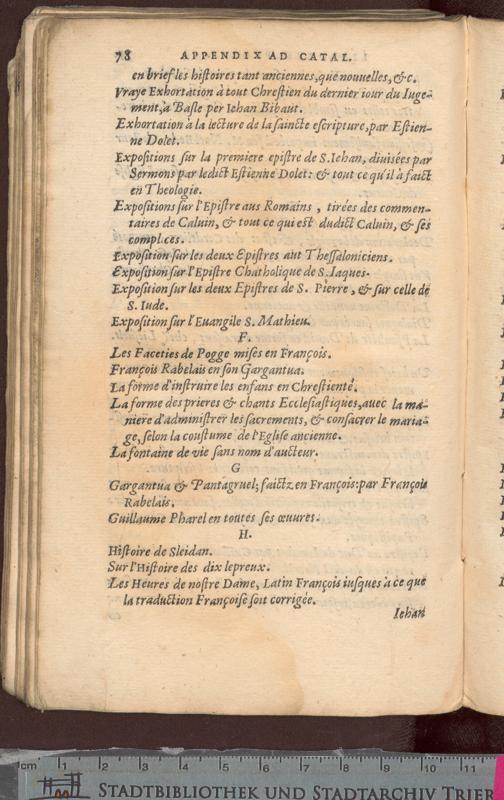 78 APPENDIX AD CATAL.
en brief les histoires tant anciennes, que nouuelles, &c.
Vraye Exhortation à tout Chrestien du dernier iour du Iuge-
ment, à Basle per Iehan Bibaut.
Exhortation à la lecture de la saincte escripture, par Estien-
ne Dolet.
Expositions sur la premiere epistre de S. Iehan, diuisées par
Sermons par ledict Estienne Dolet: & tout ce qu'il à faict
en Theologie.
Expositions sur l'Epistre aus Romains, tirées des commen-
taires de Caluin, & tout ce qui est dudict Caluin, & ses
complices.
Exposition sur les deux Epistres aut Thessaloniciens.
Exposition sur l'Epistre Chatholique de S. Iaques.
Exposition sur les deux Epistres de S. Pierre, & sur celle de
S. Iude.
Exposition sur l'Euangile S. Mathieu.
F.
Les Faceties de Pogge mises en François.
François Rabelais en son Gargantua.
La forme d'instruire les enfans en Chrestienté.
La forme des prieres & chants Ecclesiastiques, auec la ma-
niere d'administrer les sacrements, & consacrer le maria-
ge, selon la coustume de l'Eglise ancienne.
La fontaine de vie sans nom d'aucteur.
G
Gargantua & Pantagruel, faictz en François: par François
Rabelais.
Guillaume Pharel en toutes ses œuures.
H.
Histoire de Sleidan.
Sur l'Histoire des dix lepreux.
Les Heures de nostre Dame, Latin François iusques à ce que
la traduction Françoise soit corrigée.
Iehan
cm 1 2 3 4 5 6 7 8 9 10 11
STADTBIBLIOTHEK UND STADTARCHIV TRIER